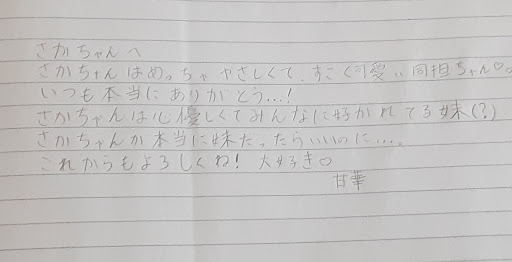 さかちゃんへ
さかちゃんはめっちゃやさしくて、すごく可愛い同担ちゃん♡。
いつも本当にありがとう...!
さかちゃんは心優しくてみんなに好かれてる妹(?)
さかちゃんが本当に妹だったらいいのに....
これからもよろしくね! 大好き♡
甘華